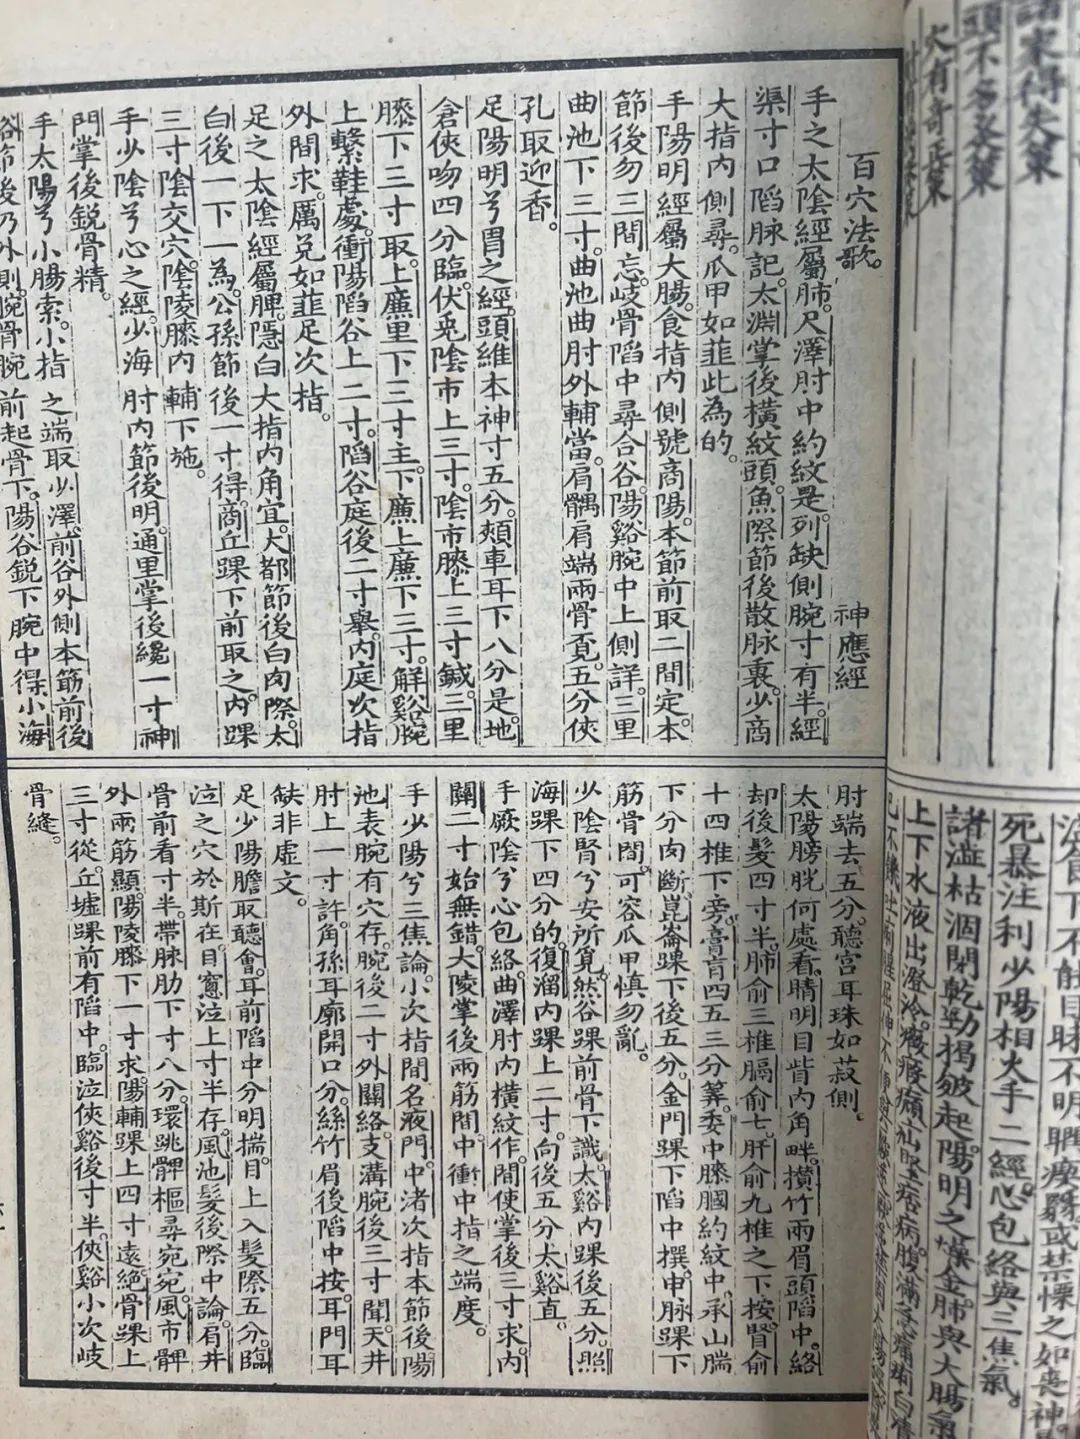 諸家得失策
頭不多灸策
穴有奇正策
死暴注利少陽相火手二經。心包絡與三焦氣。
諸澁枯涸閉乾勁揭皴起。陽明之燥金。肺與大腸氣
上下水液出澄冷。癥瘕㿗疝堅痞病。腹滿急痛痢白清
百穴法歌。 神應經
手之太陰經屬肺。尺澤肘中約紋是。列缺側腕寸有半。經
渠寸口陷脉記。太淵掌後橫紋頭。魚際節後散脉裏。少商
大指內側尋。爪甲如韮此為的。
手陽明經屬大腸。食指內側號商陽。本節前取二間定。本
節後勿三間忘。岐骨陷中尋合谷。陽谿腕中上側詳。三里
曲池下三寸。曲池曲肘外輔當。肩髃肩端兩骨覓。五分俠
孔取迎香。
足陽明兮胃之經。頭維本神寸五分。頰車耳下八分是。地
倉俠吻四分臨。伏兎陰市上三寸。陰市膝上三寸鍼。三里
膝下三寸取。上廉里下三寸主。下廉上廉下三寸。解谿腕
上繫鞋處。衝陽陷谷上二寸。陷谷庭後二寸舉。內庭次指
外間求。厲兌如韮足次指。
足之太陰經屬脾。隱白大指內角宜。大都節後白肉際。太
白後一下一為。公孫節後一寸得。商丘踝下前取之。內踝
三寸陰交穴。陰陵膝內輔下施。
手少陰兮心之經。少海肘內節後明。通里掌後纔一寸。神
門掌後銳骨精。
手太陽兮小腸索。小指之端取少澤。前谷外側本節前。後
谿節後乃外側。腕骨腕前起骨下。陽谷銳下腕中得。小海
肘端去五分。聽宮耳珠如菽側。
太陽膀胱何處看。睛明目眥內角畔。攢竹兩眉頭陷中。絡
却後髮四寸半。肺俞三椎膈俞七。肝俞九椎之下按。腎俞
十四椎下旁。膏肓四五三分筭。委中膝膕約紋中。承山腨
下分肉斷。崑崙踝下後五分。金門踝下陷中撰。申脉踝下
筋骨間。可容爪甲慎勿亂。
少陰腎兮安所算。然谷踝前骨下識。太谿內踝後五分。照
海踝下四分的。復溜內踝上二寸。向後五分太谿直。
手厥陰兮心包絡。曲澤肘內橫紋作。間使掌後三寸求。內
關二寸始無錯。大陵掌後兩筋間。中衝中指之端度。
手少陽兮三焦論。小次指間名液門。中渚次指本節後。陽
池表腕有穴存。腕後二寸外關絡。支溝腕後三寸聞。天井
肘上一寸許。角孫耳廓開口分。絲竹眉後陷中按。耳門耳
缺非虛文。
足少陽膽取聽會。耳前陷中分明揣。目上入髮際五分。臨
泣之穴於斯在。目窻泣上寸半存。風池髮後際中論。肩井
骨前看寸半。帶脉肋下寸八分。環跳髀樞尋宛宛。風市髀
外兩筋顯。陽陵膝下一寸求。陽輔踝上四寸遠。絕骨踝上
三寸從。丘墟踝前有陷中。臨泣俠谿後寸半。俠谿小次岐
骨縫。